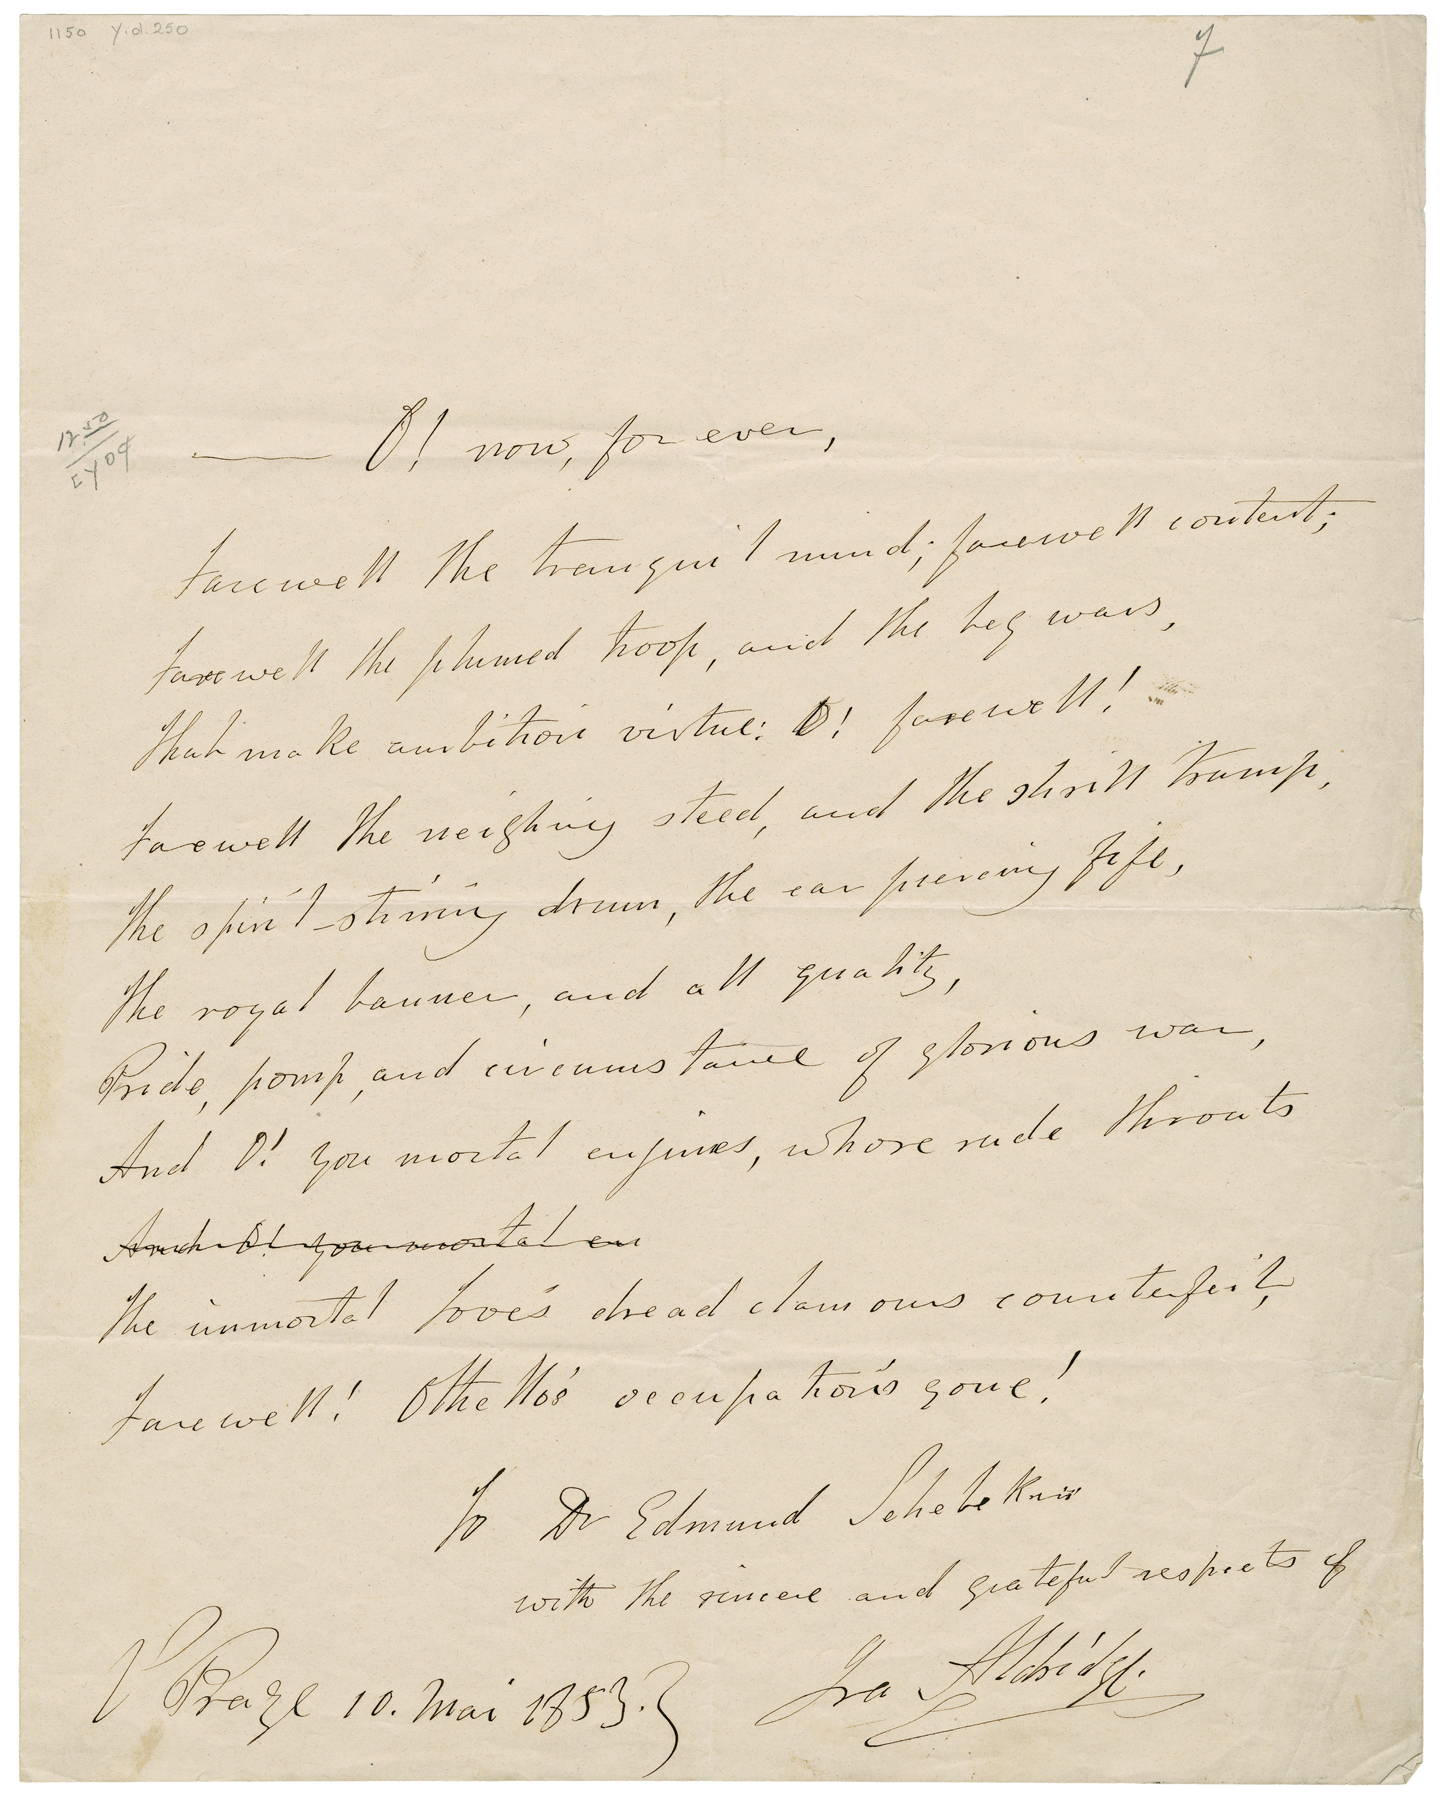 1150 Y.d.250
7
12.50
—— O! now, for ever,
Farewell the tranquil mind; farewell content;
Farewell the plumed troop, and the big wars,
That make ambition virtue: O! farewell!
Farewell the neighing steed, and the shrill trump,
The spirit-stirring drum, the ear piercing fife,
The royal banner, and all quality,
Pride, pomp, and circumstance of glorious war,
And O! you mortal engines, whose rude throats
And O! you mortal en
The immortal Jove's dread clamours counterfeit,
Farewell! Othello's occupation's gone!
To Dr Edmund
with the sincere and grateful respects of
Ira Aldridge.
V Praze 10. Mai 1853.